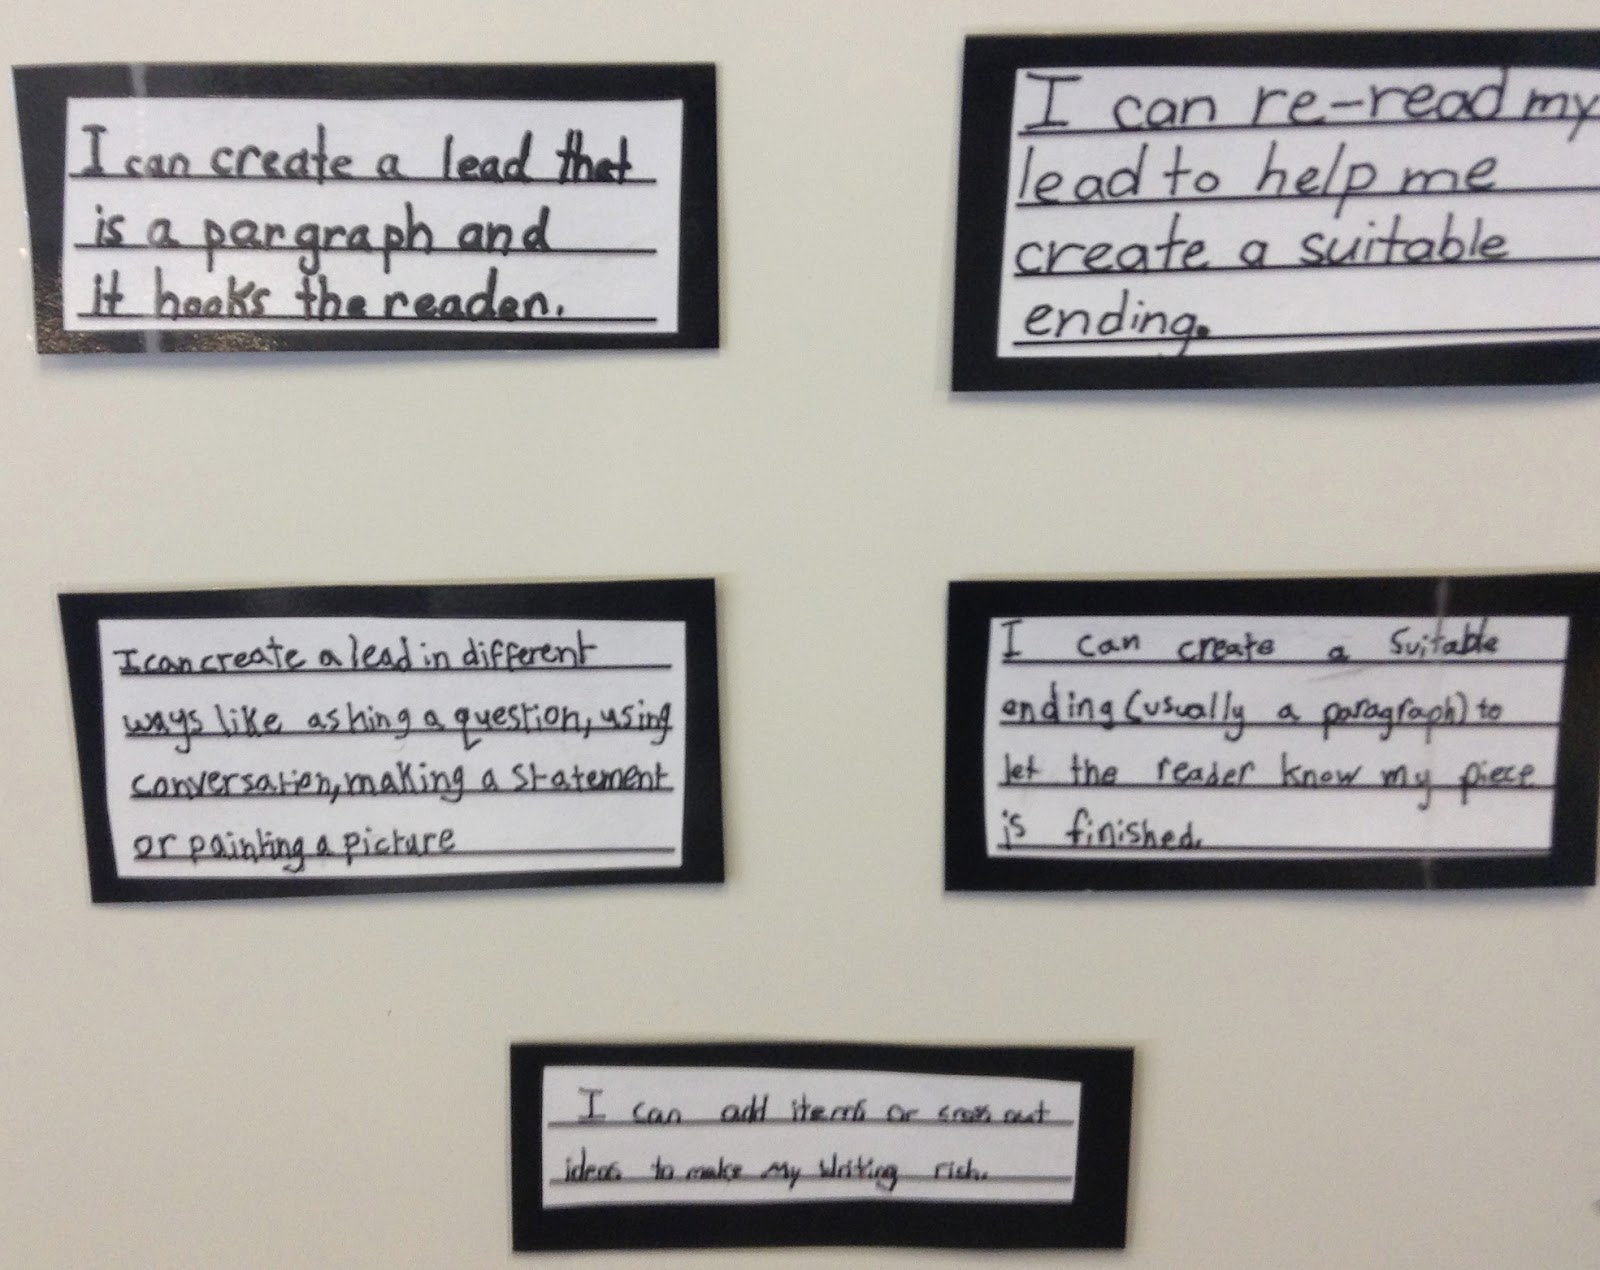 I can create a lead that
is a pargraph and
it hooks the reader.
I can re-read my
lead to help me
create a suitable
ending.
I can create a lead in different
ways like asking a question, using
conversation, making a statement
or painting a picture
I can create a suitable
ending (usually a paragraph) to
let the reader know my piece
is finished.
I can add items or cross out
ideas to make my writing rich.